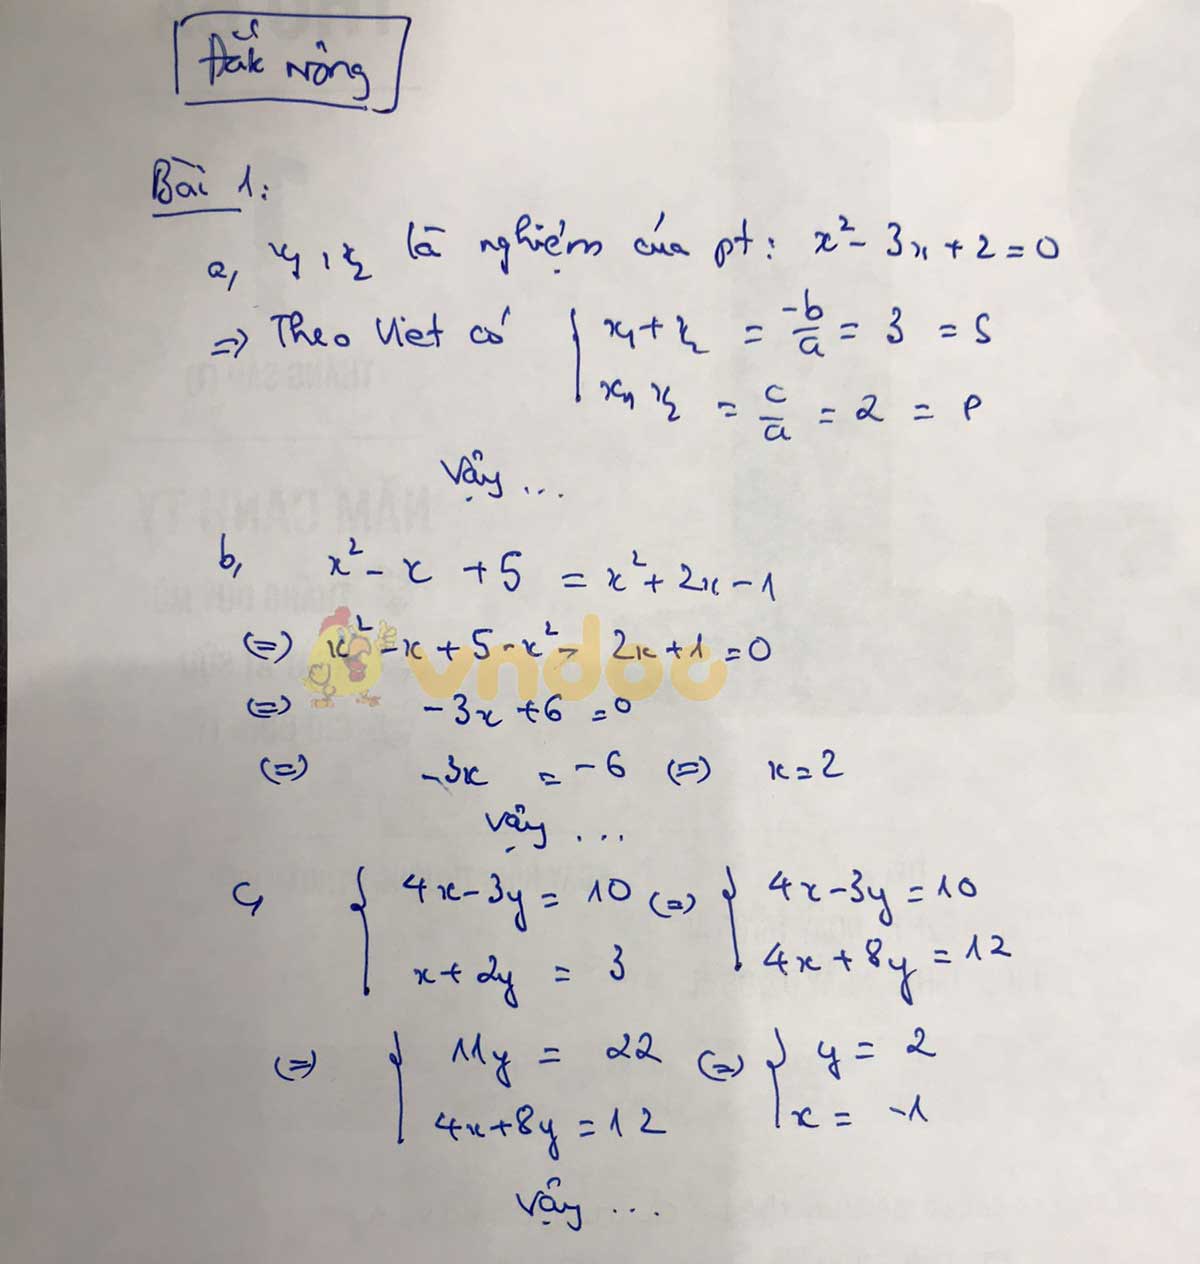 Đắk Nông
Bài 1:
a, x₁, x₂ là nghiệm của pt: x² - 3x + 2 = 0
=> Theo Viet có { x₁ + x₂ = -b/a = 3 = S
x₁ x₂ = c/a = 2 = P
Vậy ...
b, x² - x + 5 = x² + 2x - 1
(=) x² - x + 5 - x² - 2x + 1 = 0
vndoc
(=) -3x + 6 = 0
(=) -3x = -6 (=) x = 2
Vậy ...
c, { 4x - 3y = 10 (=) { 4x - 3y = 10
x + 2y = 3 4x + 8y = 12
(=) { 11y = 22 (=) { y = 2
4x + 8y = 12 x = -1
Vậy ...